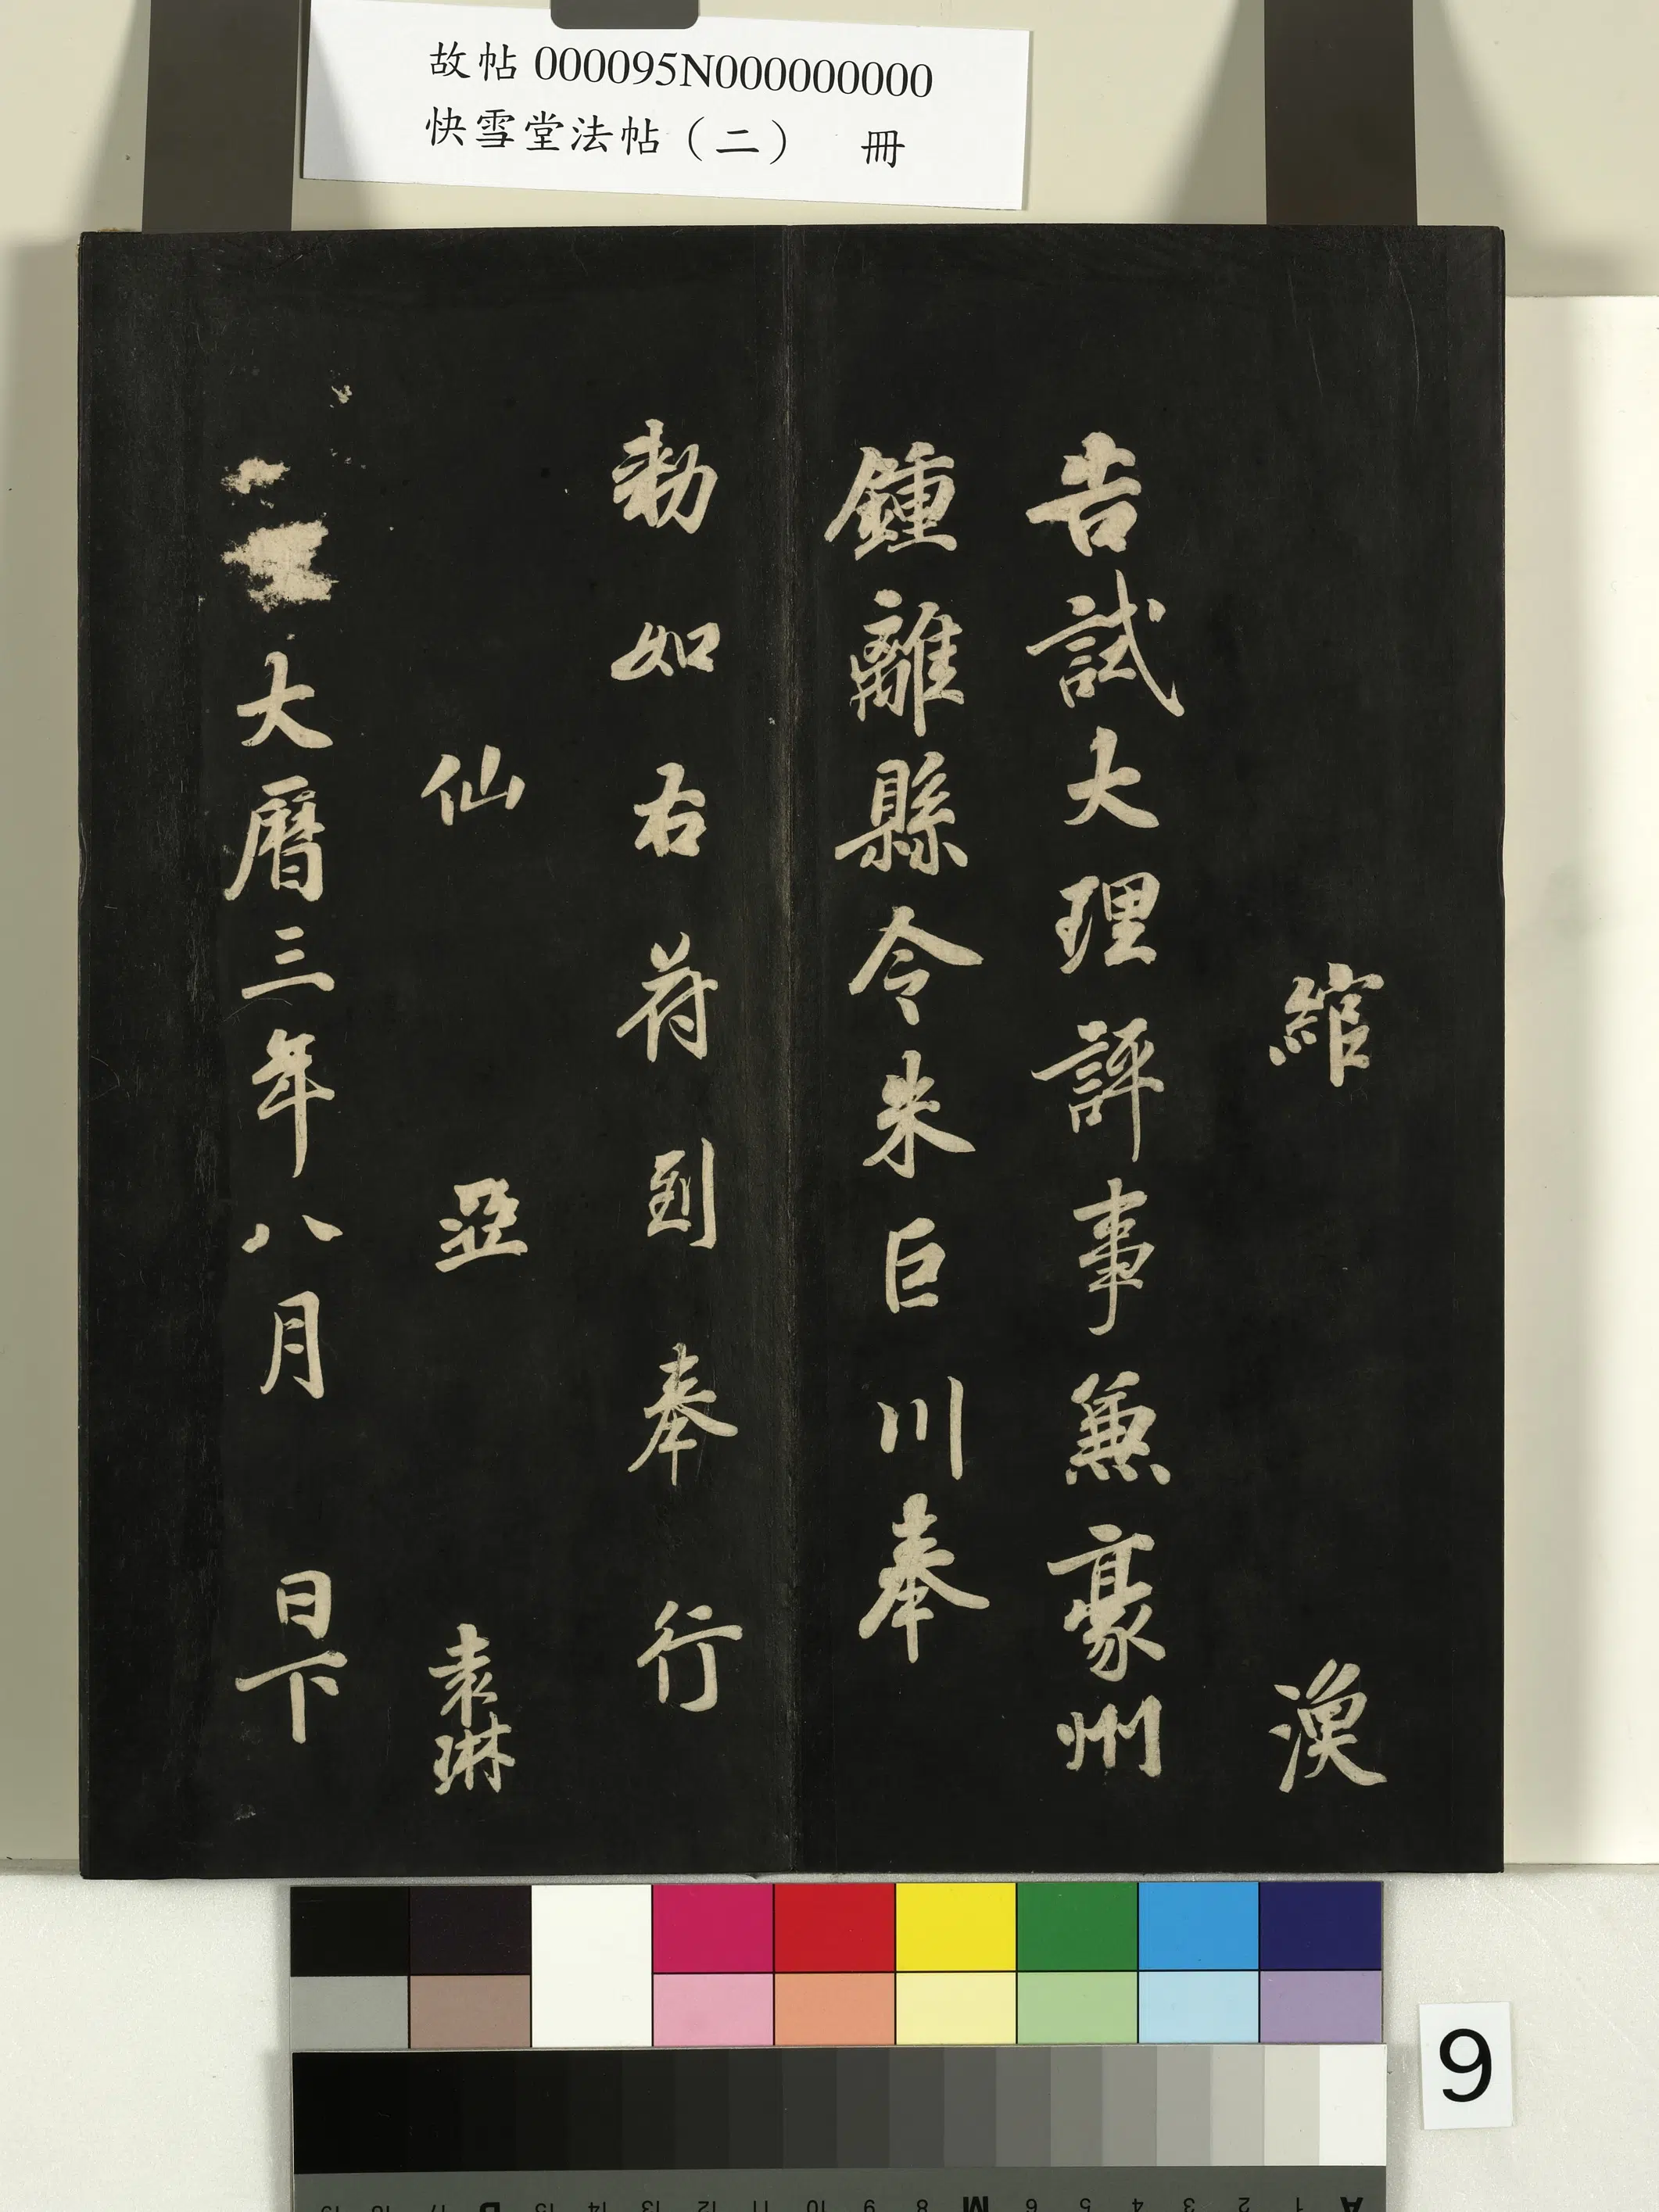 故帖000095N000000000
快雪堂法帖（二） 冊
綰 渙
告試大理評事兼豪州
鍾離縣令朱巨川奉
勅如右符到奉行
仙 亞 袁琳
大曆三年八月 日下
9
A 1 2 3 4 5 6 M 8 9 10 11 12 13 14 15 B 17 18 19